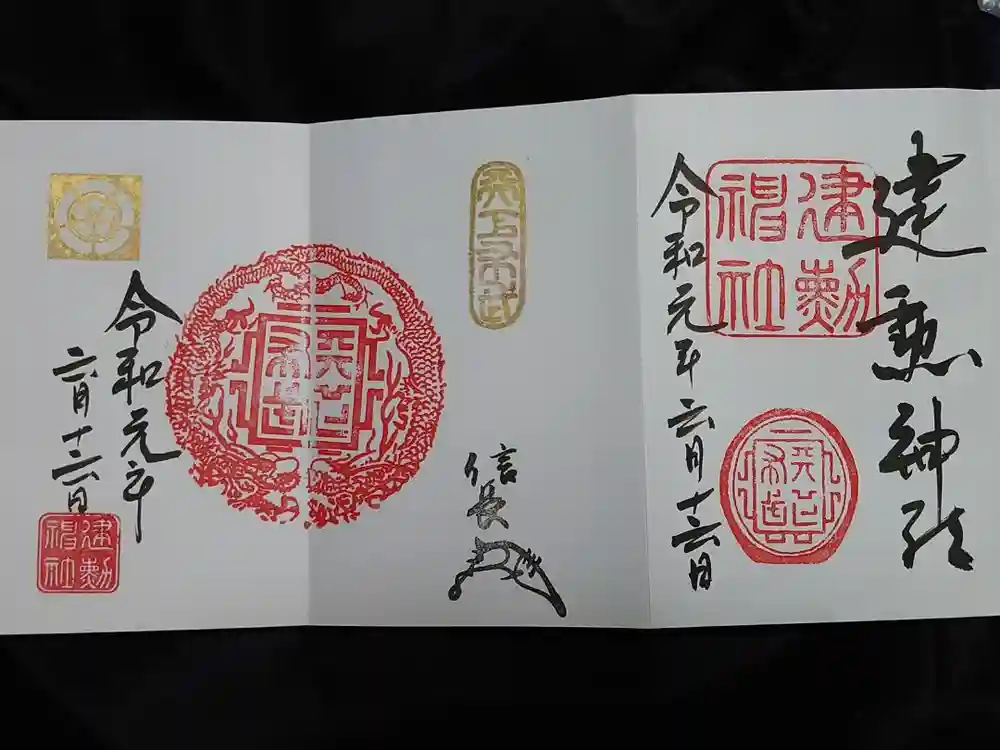 建勲神社
建勲
神社
天下
布武
令和元年六月十六日
天下布武
信長
天下
布武
令和元年
六月十六日
建勲
神社